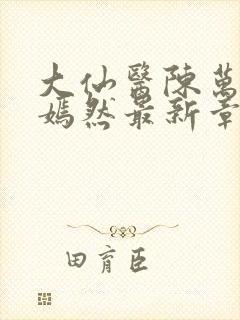 大仙醫陳萬
嫣然最新章
田育臣